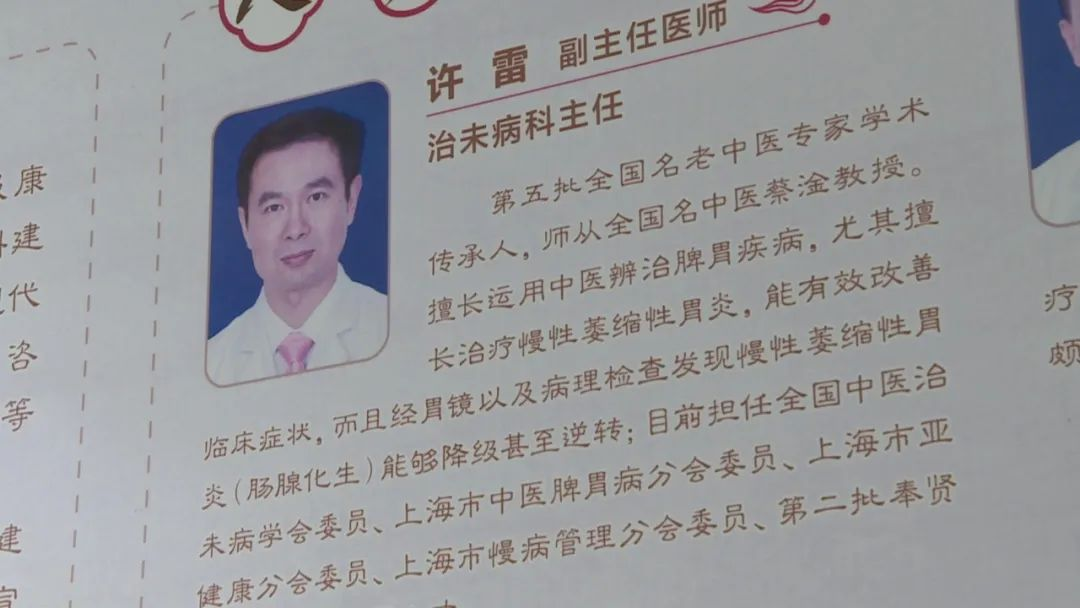 许雷 副主任医师
治未病科主任
第五批全国名老中医专家学术
传承人，师从全国名中医蔡淦教授。
擅长运用中医辨治脾胃疾病，尤其擅
长治疗慢性萎缩性胃炎，能有效改善
临床症状，而且经胃镜以及病理检查发现慢性萎缩性胃
炎（肠腺化生）能够降级甚至逆转；目前担任全国中医治
未病学会委员、上海市中医脾胃病分会委员、上海市亚
健康分会委员、上海市慢病管理分会委员、第二批奉贤
康
建
代
咨
等
建
宣
疗
颇